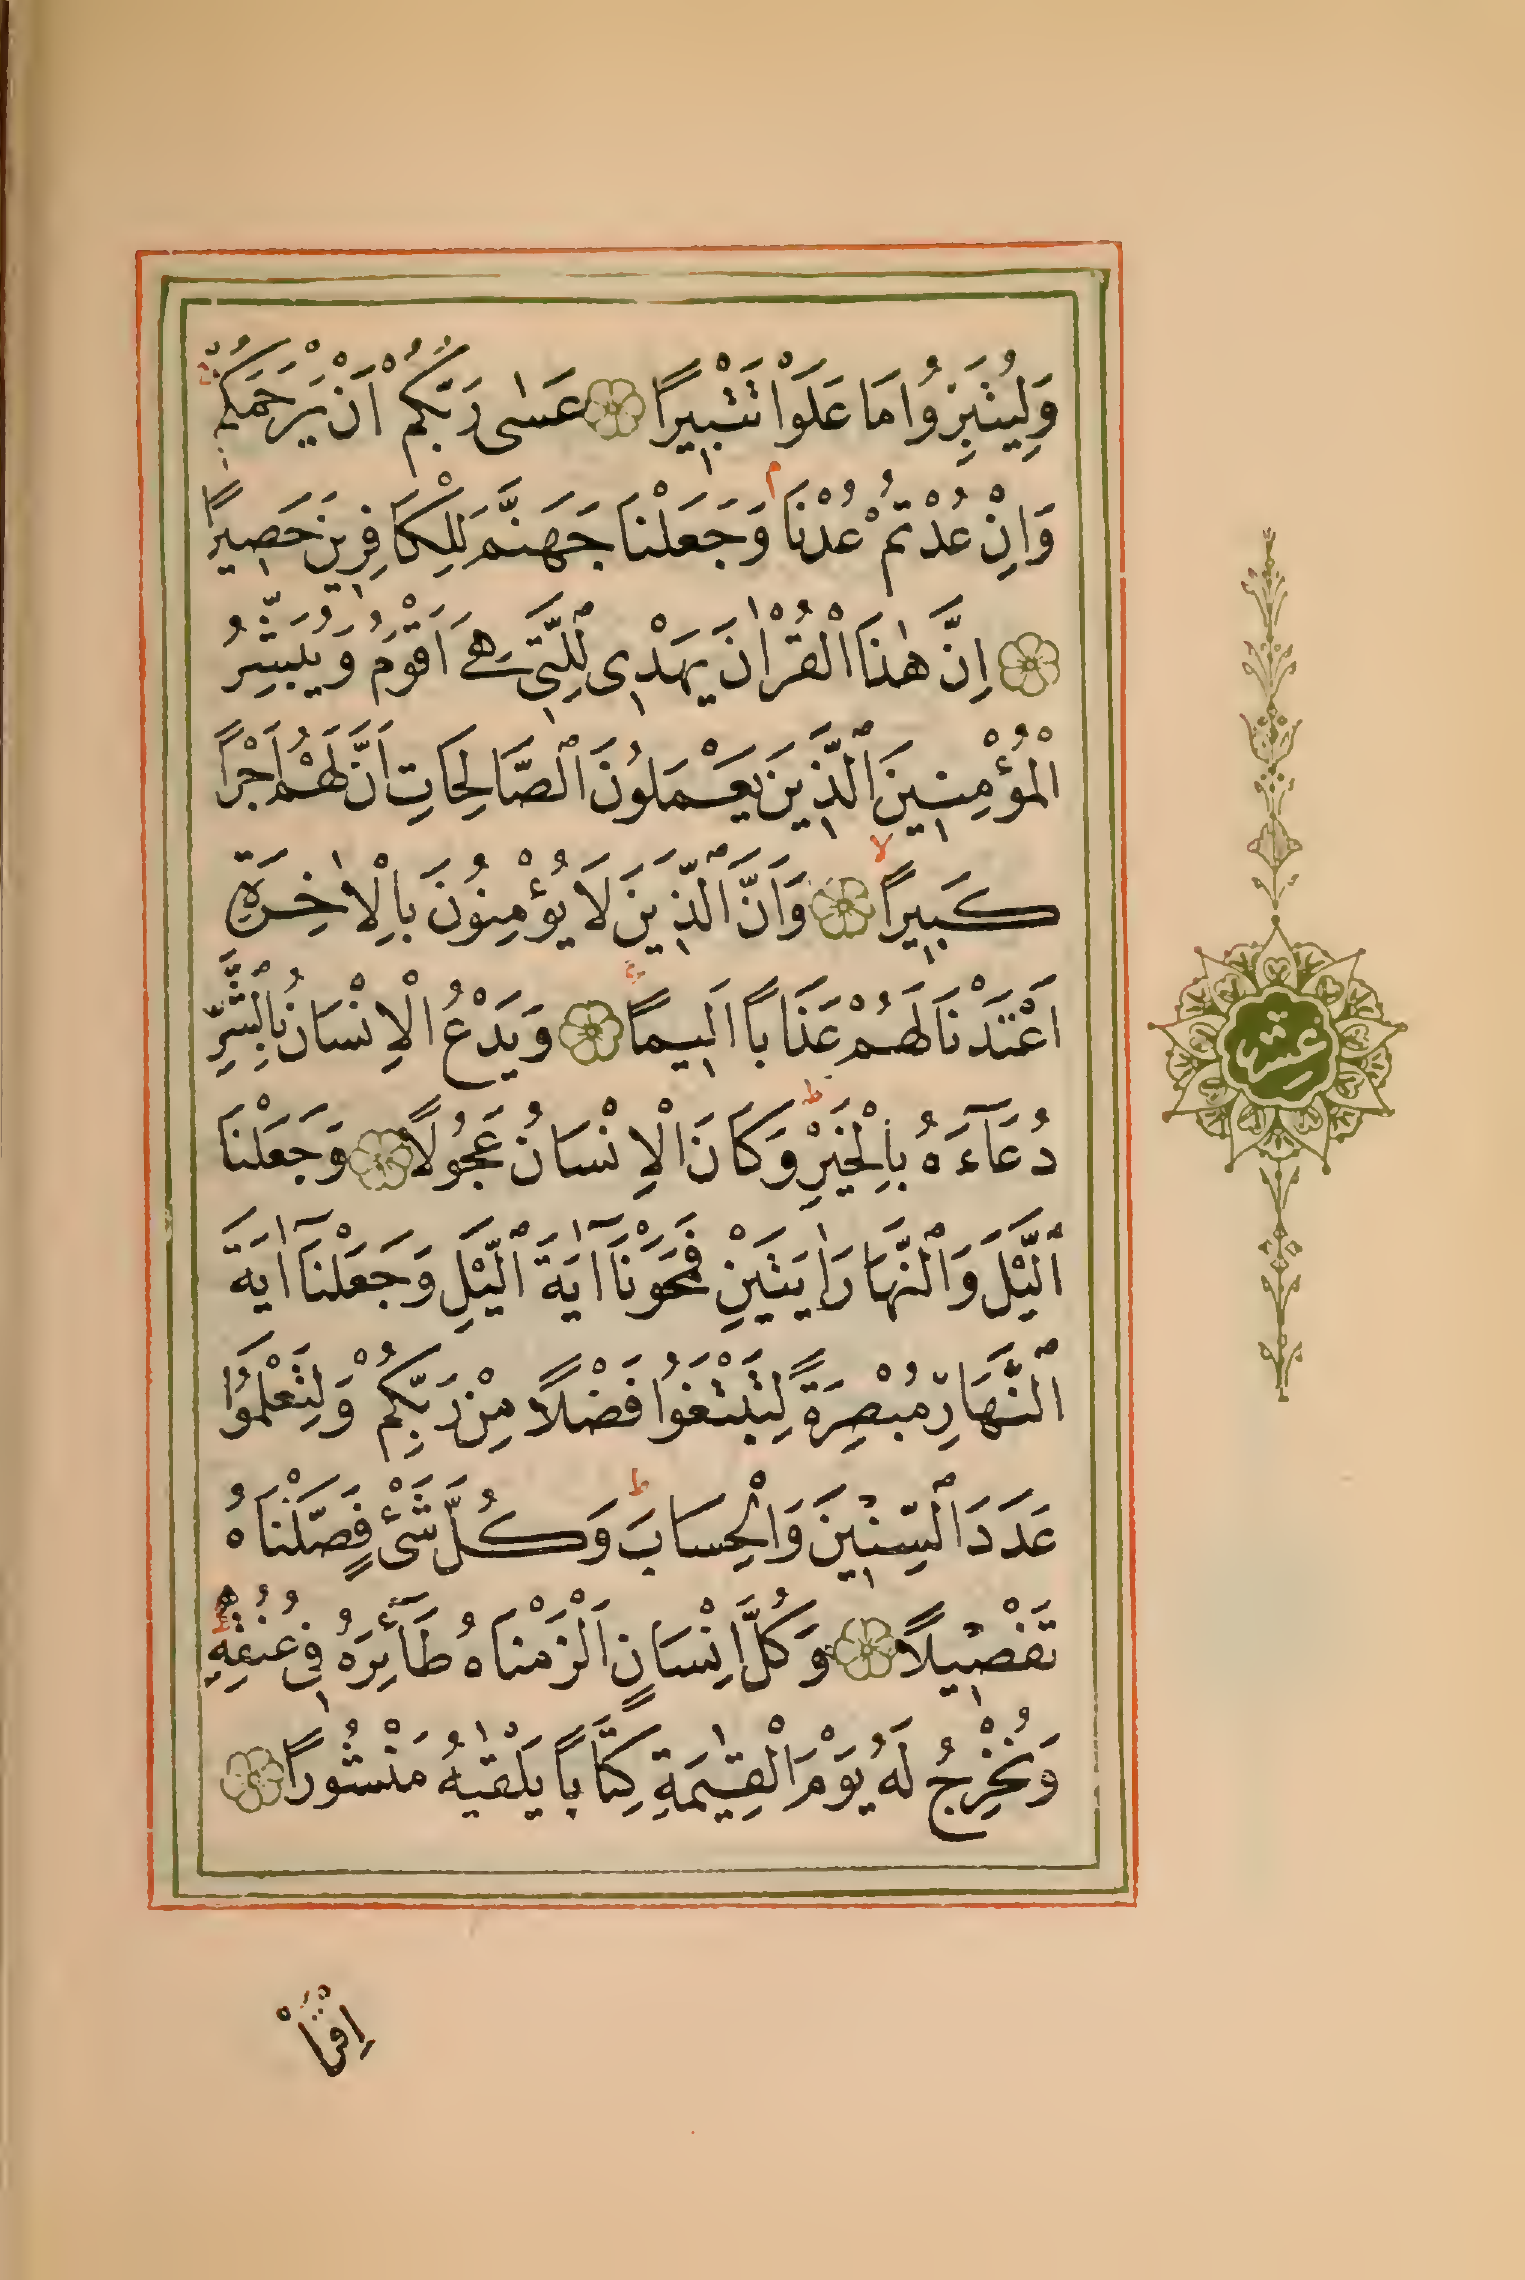 وَلِيُتَبِّرُوا مَا عَلَوْا تَتْبِيرًا عَسٰى رَبُّكُمْ اَنْ يَرْحَمَكُمْ
وَاِنْ عُدْتُمْ عُدْنَا م وَجَعَلْنَا جَهَنَّمَ لِلْكَافِرِينَ حَصِيرًا
اِنَّ هٰذَا الْقُرْاٰنَ يَهْدِى لِلَّتِى هِىَ اَقْوَمُ وَيُبَشِّرُ
الْمُؤْمِنِينَ الَّذِينَ يَعْمَلُونَ الصَّالِحَاتِ اَنَّ لَهُمْ اَجْرًا
كَبِيرًا لا وَاَنَّ الَّذِينَ لَا يُؤْمِنُونَ بِالْاٰخِرَةِ
اَعْتَدْنَا لَهُمْ عَذَابًا اَلِيمًا ع وَيَدْعُ الْاِنْسَانُ بِالشَّرِّ
دُعَآءَهُ بِالْخَيْرِ ط وَكَانَ الْاِنْسَانُ عَجُولًا وَجَعَلْنَا
الَّيْلَ وَالنَّهَارَ اٰيَتَيْنِ فَمَحَوْنَآ اٰيَةَ الَّيْلِ وَجَعَلْنَآ اٰيَةَ
النَّهَارِ مُبْصِرَةً لِتَبْتَغُوا فَضْلًا مِنْ رَبِّكُمْ وَلِتَعْلَمُوا
عَدَدَ السِّنِينَ وَالْحِسَابَ ط وَكُلَّ شَىْءٍ فَصَّلْنَاهُ
تَفْصِيلًا وَكُلَّ اِنْسَانٍ اَلْزَمْنَاهُ طَآئِرَهُ فِى عُنُقِهِ ط
وَنُخْرِجُ لَهُ يَوْمَ الْقِيٰمَةِ كِتَابًا يَلْقٰيهُ مَنْشُورًا
عشر
اِقْرَأْ